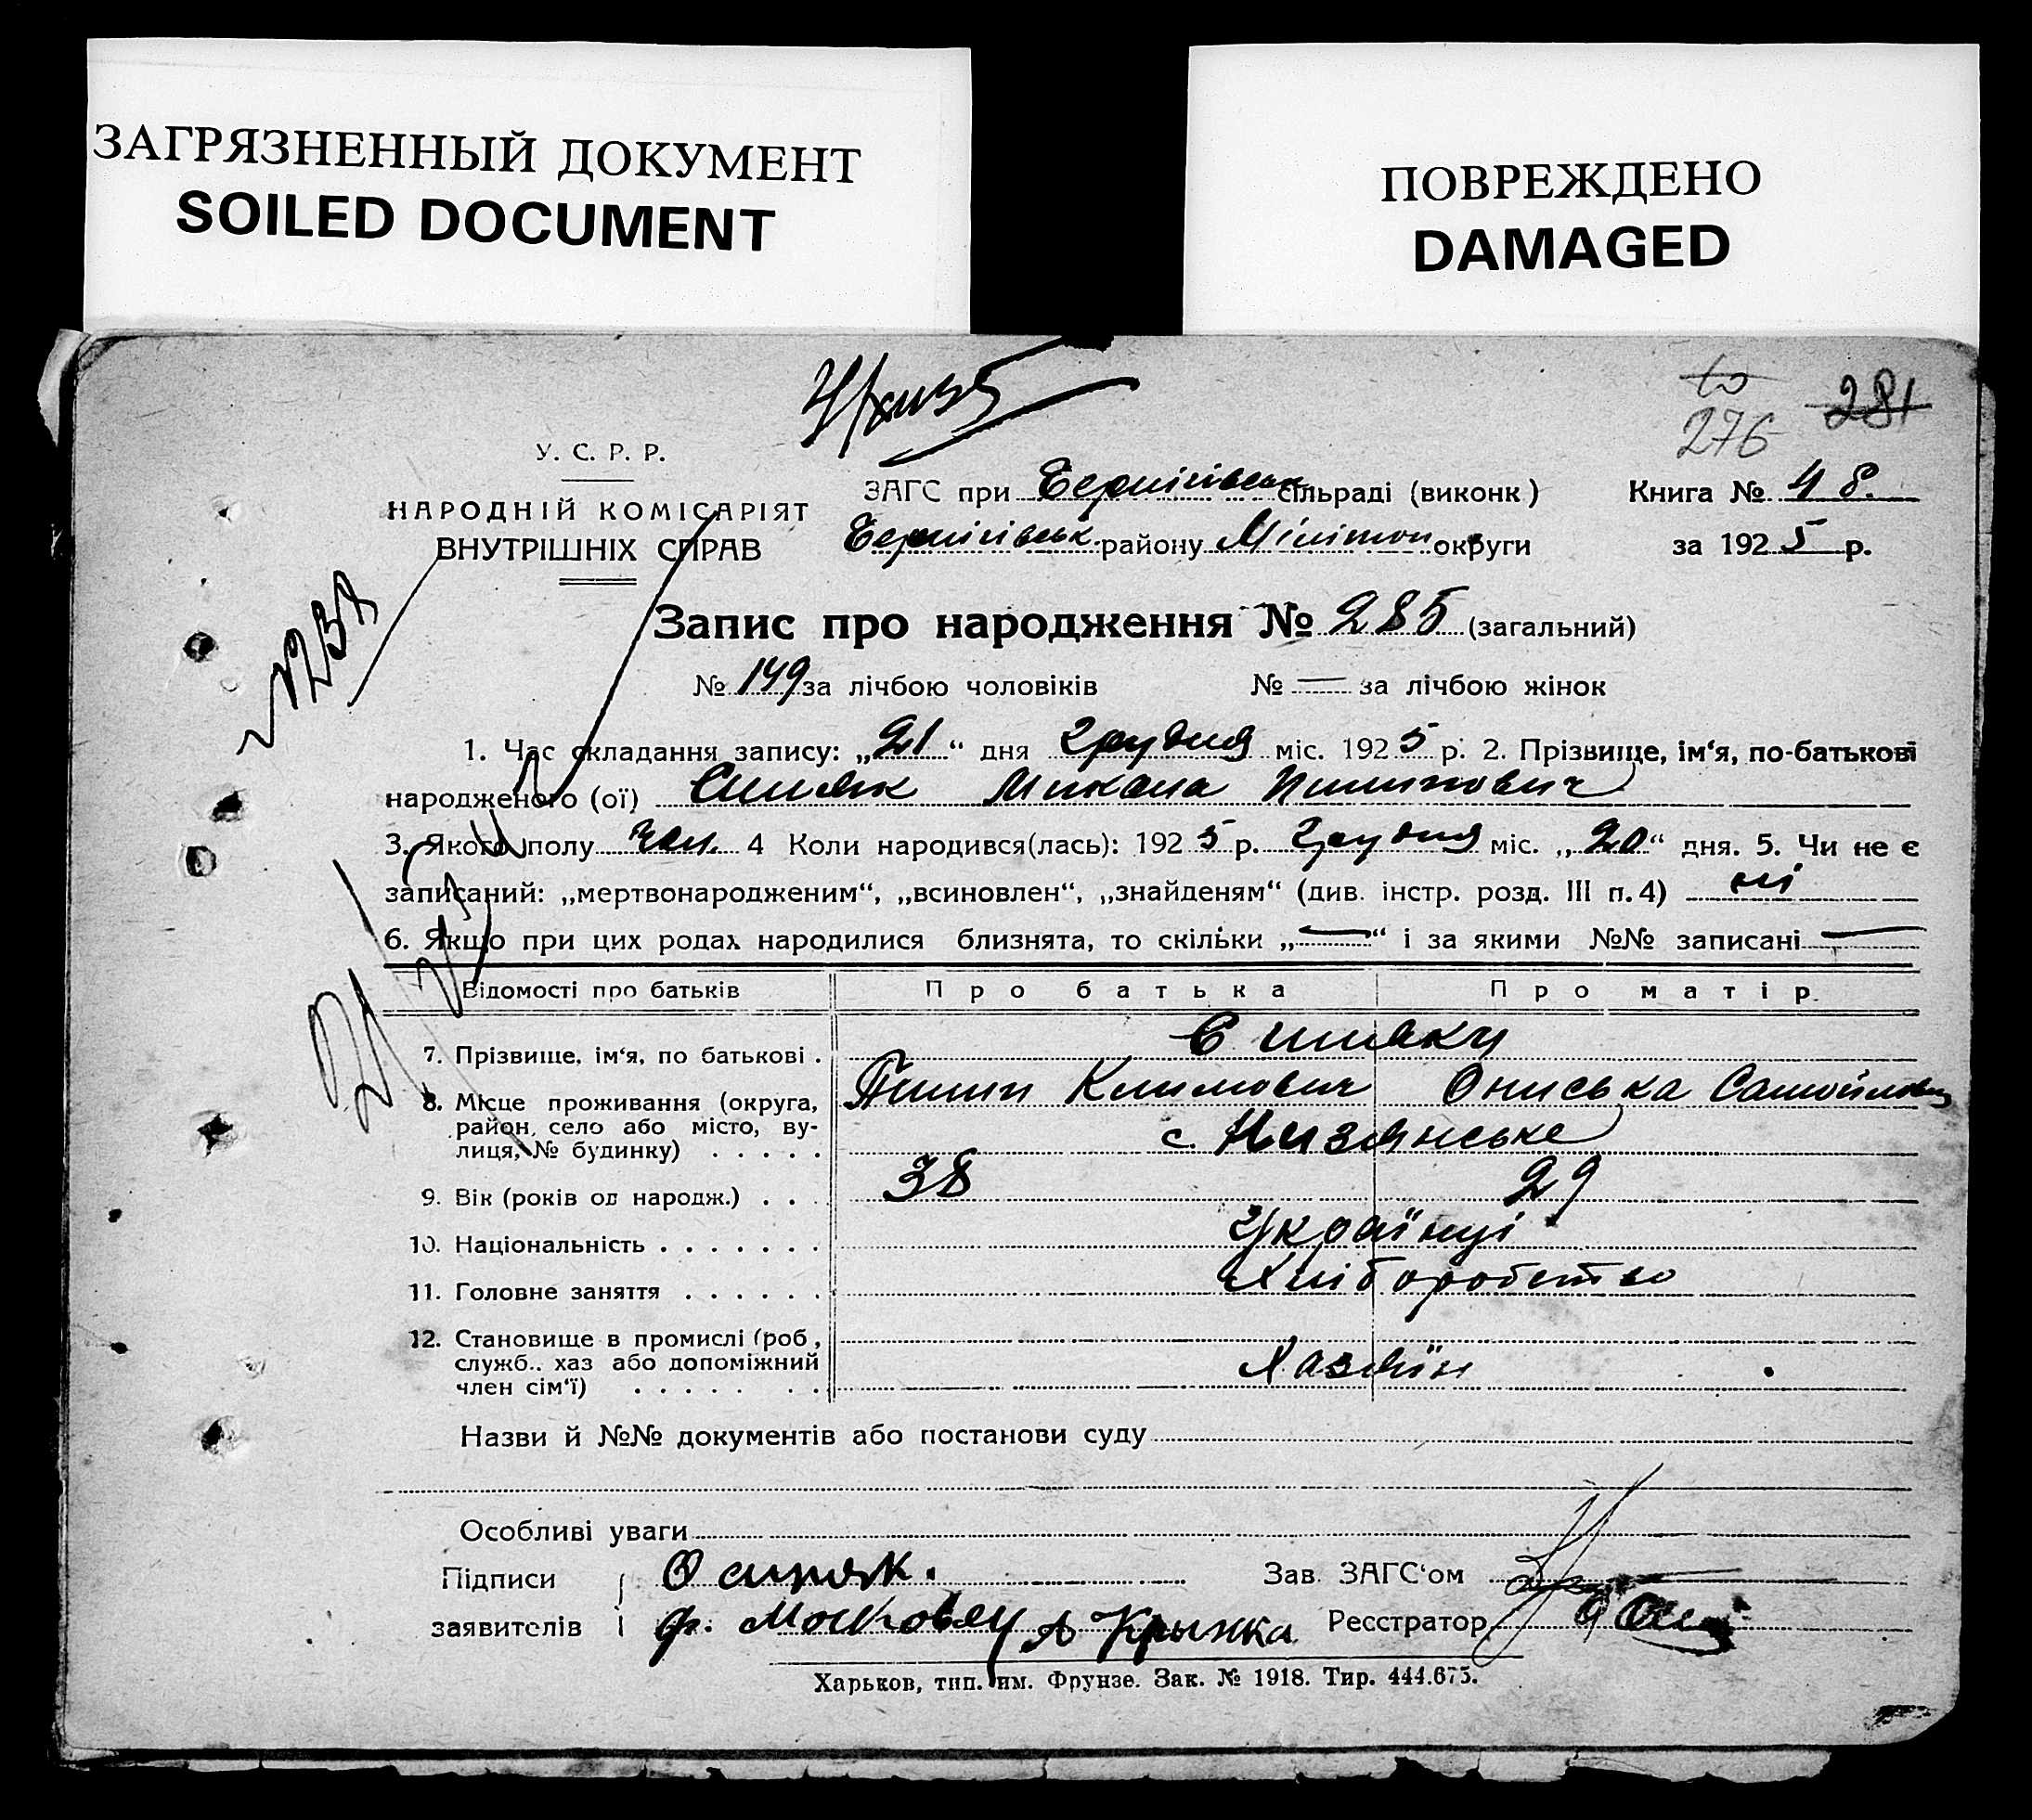 ЗАГРЯЗНЕННЫЙ ДОКУМЕНТ
SOILED DOCUMENT
ПОВРЕЖДЕНО
DAMAGED
281
276
У. С. Р. Р.
НАРОДНІЙ КОМІСАРІЯТ
ВНУТРІШНІХ СПРАВ
ЗАГС при Чернігівськ сільраді (виконк)
Чернігівськ. району Мілітоп округи
Книга № 48.
за 1925 р.
Запис про народження № 285 (загальний)
№ 149 за лічбою чоловіків № — за лічбою жінок
1. Час складання запису: „21“ дня Грудня міс. 1925 р. 2. Прізвище, ім‘я, по-батькові
народженого (ої) Синяк Микола Пилипович
3. Якого полу чол. 4 Коли народився(лась): 1925 р. Грудня міс. „20“ дня. 5. Чи не є
записаний: „мертвонародженим“, „всиновлен“, „знайденям“ (див. інстр. розд. III п. 4) ні
6. Якщо при цих родах народилися близнята, то скільки „—“ і за якими №№ записані —
Відомості про батьків Про батька Про матір.
7. Прізвище, ім‘я, по батькові . Синяки
Пилип Климович Ониська Самойлівна
8. Місце проживання (округа,
район, село або місто, ву-
лиця, № будинку) . . . . . с. Низянське
9. Вік (років од народж.) . . . 38 29
10. Національність . . . . . . . Українці
11. Головне заняття . . . . . . Хліборобство
12. Становище в промислі (роб,
служб.. хаз або допоміжний
член сім‘ї) . . . . . . . Хазяїн
Назви й №№ документів або постанови суду
Особливі уваги
Підписи О синяк. Зав. ЗАГС‘ом
заявителів ф. Московец А Крыжка Реєстратор
Харьков, тип. им. Фрунзе. Зак. № 1918. Тир. 444.675.